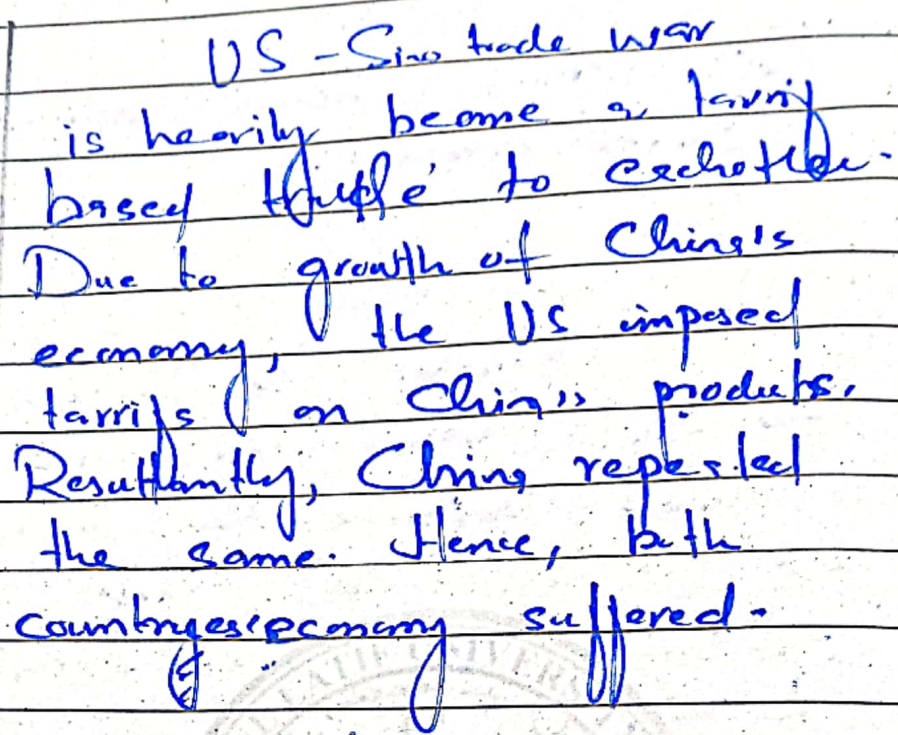 US - Sino trade war
is heavily become a tarrif
based to eachother.
Due to growth of China's
economy, the US imposed
tarrifs on China's products.
Resultantly, China repeated
the same. Hence, both
countryes economy suffered.
UNIVER